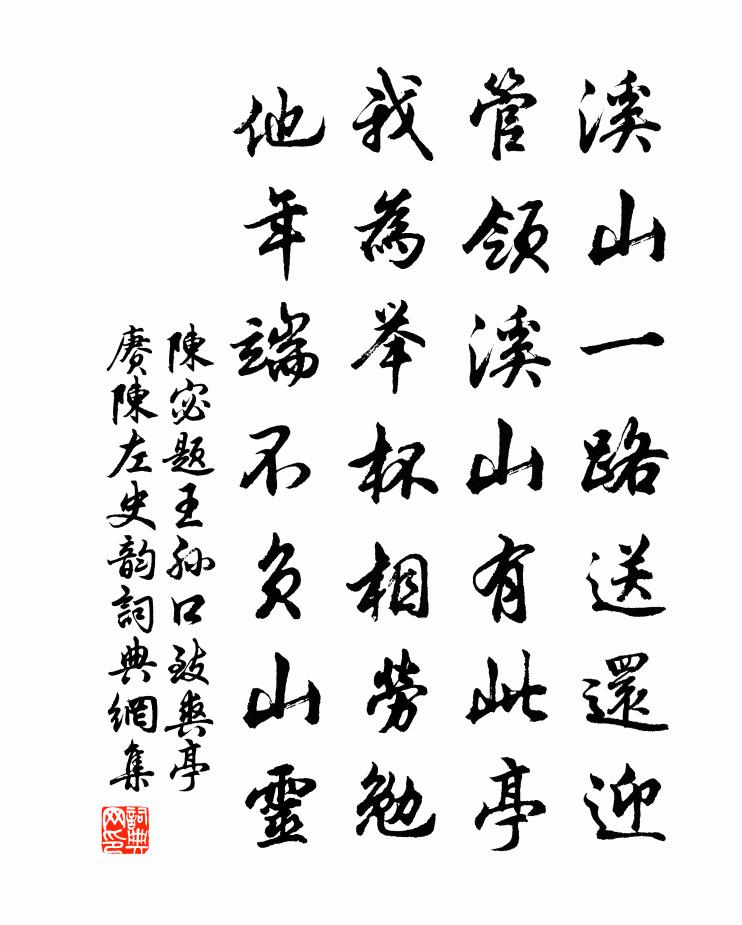 溪山一路送還迎
管領溪山有此亭
我為举杯相勞勉
他年端不負山靈
陳宓题王孙口致爽亭
賡陳左史韵詞典網集
詞典
网印